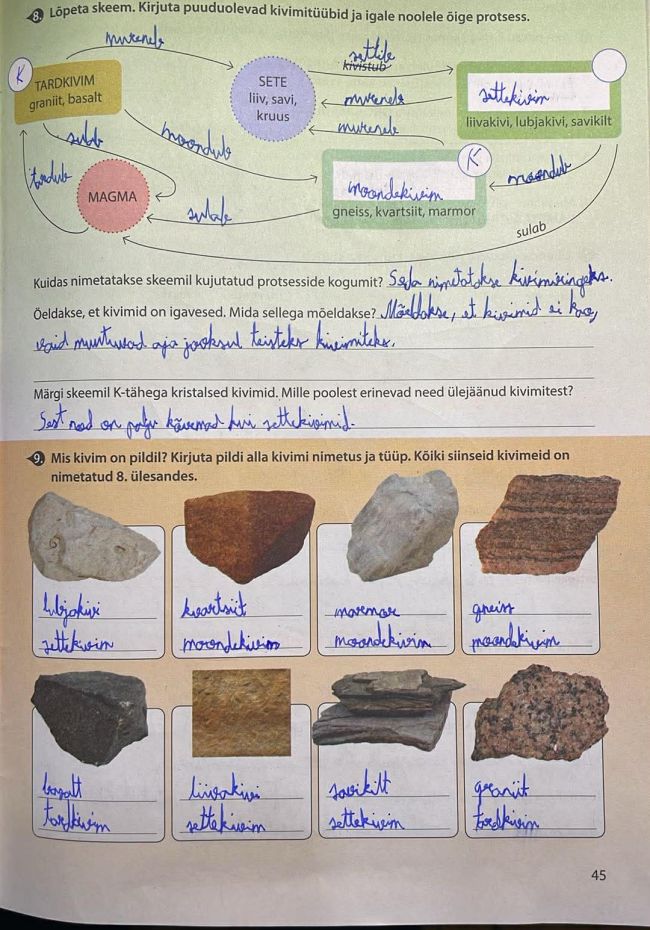 8. Lõpeta skeem. Kirjuta puuduolevad kivimitüübid ja igale noolele õige protsess.
mureneb
settib
kivistub
K
TARDKIVIM
graniit, basalt
SETE
liiv, savi,
kruus
mureneb
mureneb
settekivim
liivakivi, lubjakivi, savikilt
sulab
moondub
K
tardub
MAGMA
moondekivim
gneiss, kvartsiit, marmor
moondub
sulab
sulab
Kuidas nimetatakse skeemil kujutatud protsesside kogumit? Seda nimetatakse kivimiringeks.
Öeldakse, et kivimid on igavesed. Mida sellega mõeldakse? Mõeldakse, et kivimid ei kao,
vaid muutuvad aja jooksul teisteks kivimiteks.
Märgi skeemil K-tähega kristalsed kivimid. Mille poolest erinevad need ülejäänud kivimitest?
Sest nad on palju kõvemad kui settekivimid.
9. Mis kivim on pildil? Kirjuta pildi alla kivimi nimetus ja tüüp. Kõiki siinseid kivimeid on
nimetatud 8. ülesandes.
lubjakivi kvartsiit marmor gneiss
settekivim moondekivim moondekivim moondekivim
basalt liivakivi savikilt graniit
tardkivim settekivim settekivim tardkivim
45